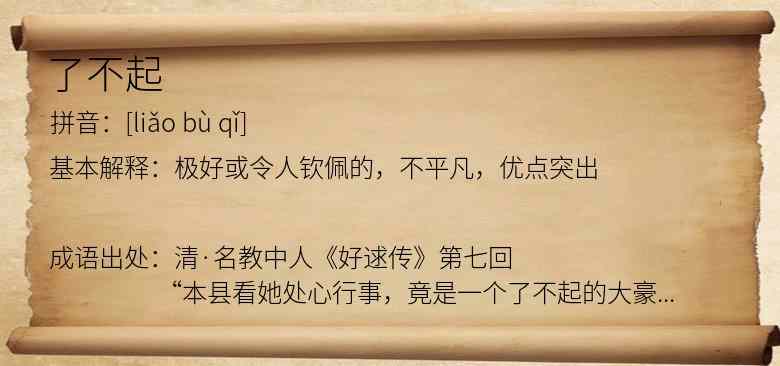 了不起
拼音：[liǎo bù qǐ]
基本解释：极好或令人钦佩的，不平凡，优点突出
成语出处：清·名教中人《好逑传》第七回
“本县看她处心行事，竟是一个了不起的大豪...